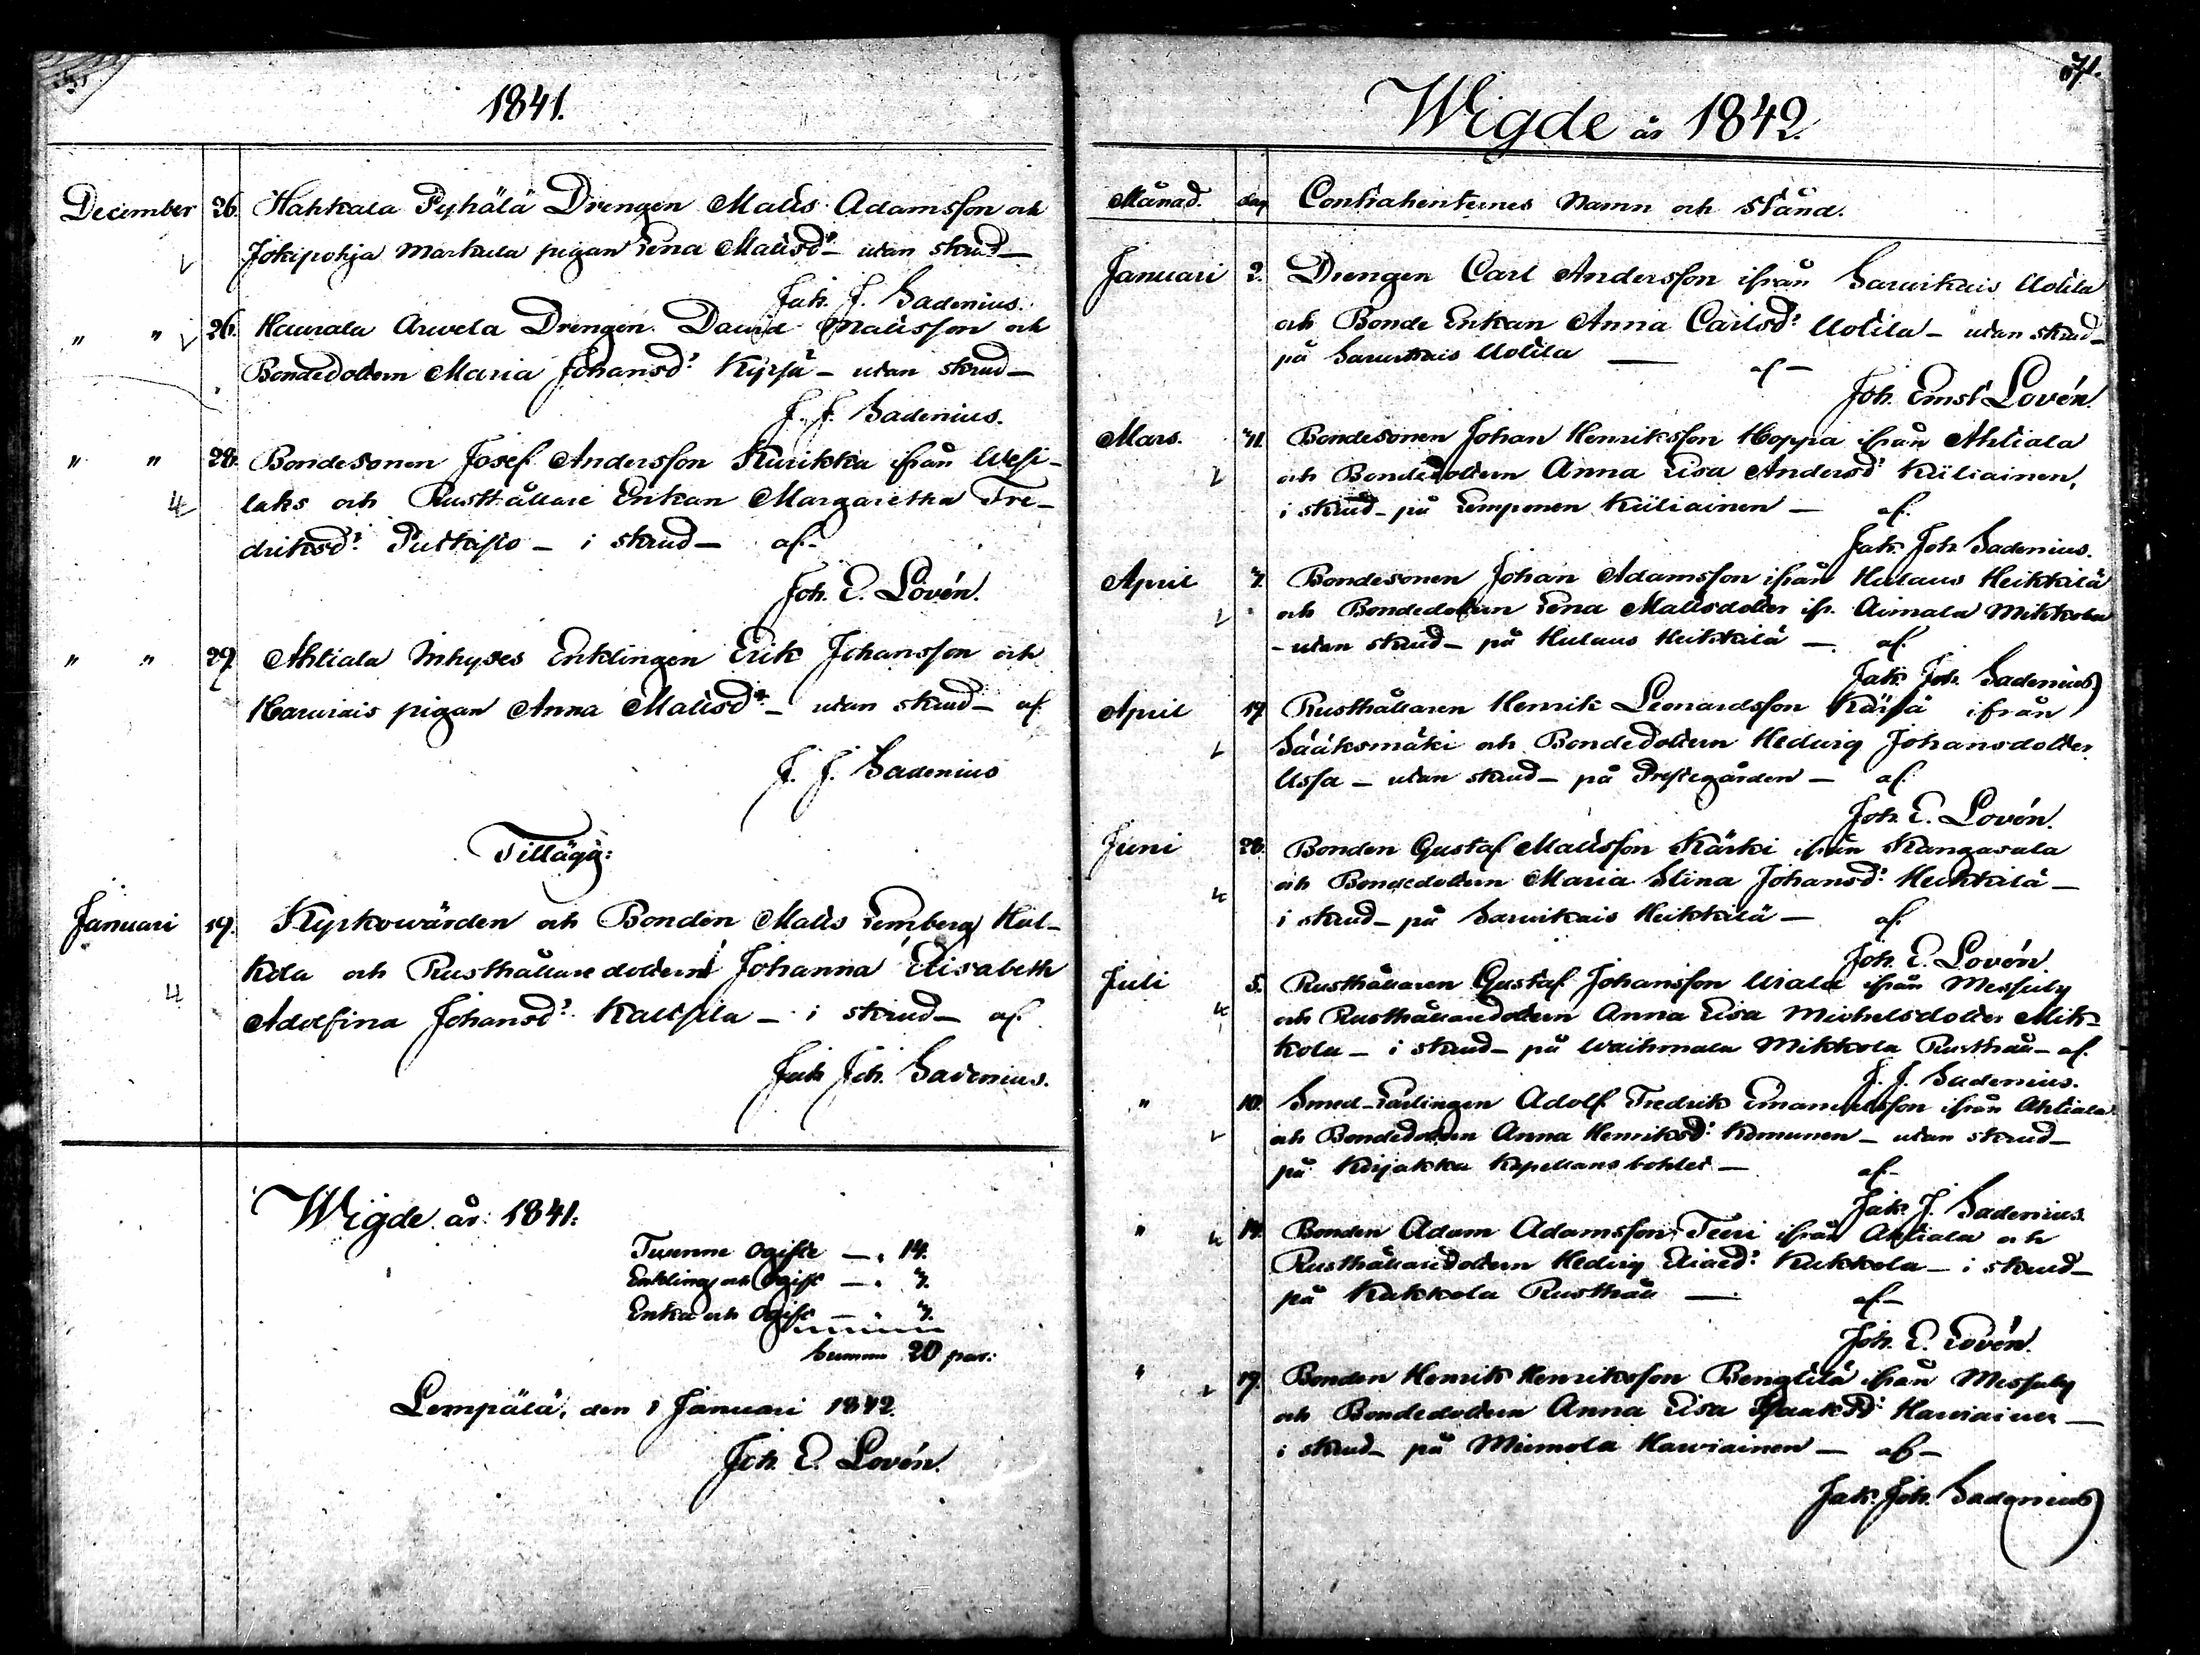 1841.
December 26. Hakkala Pyhälä Drengen Matts Adamsson och
Jokipohja Markula pigan Lena Mattsdr – utan skrud –
Jak. J. Sadenius.
" " 26. Haurala Arvela Drengen David Mattsson och
Bondedottern Maria Johansdr – utan skrud –
J. J. Sadenius.
" " 28. Bondesonen Josef Andersson Kurikka ifrån Wesi-
laks och Rusthållare Enkan Margaretha Fre-
driksdr – i skrud – af –
Joh. E. Lovén.
" " 29. Ahtiala Inhyses Enklingen Erik Johansson och
pigan Anna Mattsdr – utan skrud – af
J. J. Sadenius
Tillägg:
Januari 19. Kyrkowärden och Bonden Matts Lemberg Hul-
kola och Rusthållaredottern Johanna Elisabeth
Adolfina Johansdr – i skrud – af
Jak Joh. Sadenius.
Wigde år 1841:
Tvenne Ogifte – 14.
Enkling och Ogift –
Enka och Ogift –
Summa 20 par:
Lempälä, den 1 Januari 1842.
Joh. E. Lovén.
71.
Wigde år 1842.
Månad. dag Contrahenternes Namn och stånd.
Januari 2. Drengen Carl Andersson ifrån Sarvikais Uotila
och Bonde Enkan Anna Carlsdr Uotila – utan skrud –
på Sarvikais Uotila – af –
Joh. Ernst Lovén.
Mars. Bondesonen Johan Henriksson Hoppa ifrån Ahtiala
och Bondedottern Anna Lisa Andersdr Kiiliainen,
i skrud – på Lemponen Kiiliainen – af.
Jak. Joh. Sadenius.
April 7. Bondesonen Johan Adamsson ifrån Hulaus Heikkilä
och Bondedottern Lena Mattsdotter ifr. Aimala Mikkola
– utan skrud – på Hulaus Heikkilä – af.
Jak. Joh. Sadenius
April 19 Rusthållaren Henrik Leonardsson ifrån
Sääksmäki och Bondedottern Hedvig Johansdotter
Ussa – utan skrud – på Prestegården – af
Joh. E. Lovén.
Juni 28. Bonden Gustaf Mattsson Kärki ifrån Kangasala
och Bondedottern Maria Stina Johansdr Heikkilä –
i skrud – på Sarvikais Heikkilä – af
Joh. E. Lovén.
Juli 5. Rusthållaren Gustaf Johansson Uiala ifrån Messuby
och Rusthållaredottern Anna Lisa Michelsdotter Mik-
kola – i skrud – på Waihmala Mikkola Rusthåll – af.
J. J. Sadenius.
" 10. Smed-Lärlingen Adolf Fredrik Emanuelsson ifrån Ahtiala
och Bondedottern Anna Henriksdr Komunen – utan skrud –
på Kuljakka Kapellansbohlet – af –
Jak. J. Sadenius.
" 14. Bonden Adam Adamsson Teeri ifrån Ahtiala och
Rusthållaredottern Hedvig Eliaedr Kukkola – i skrud –
på Kukkola Rusthåll – af –
Joh. E. Lovén.
" 19. Bonden Henrik Henriksson Bengtilä ifrån Messuby
och Bondedottern Anna Lisa Isaaksdr Hawiainen –
i skrud – på Miemola Hawiainen – af –
Jak. Joh. Sadenius